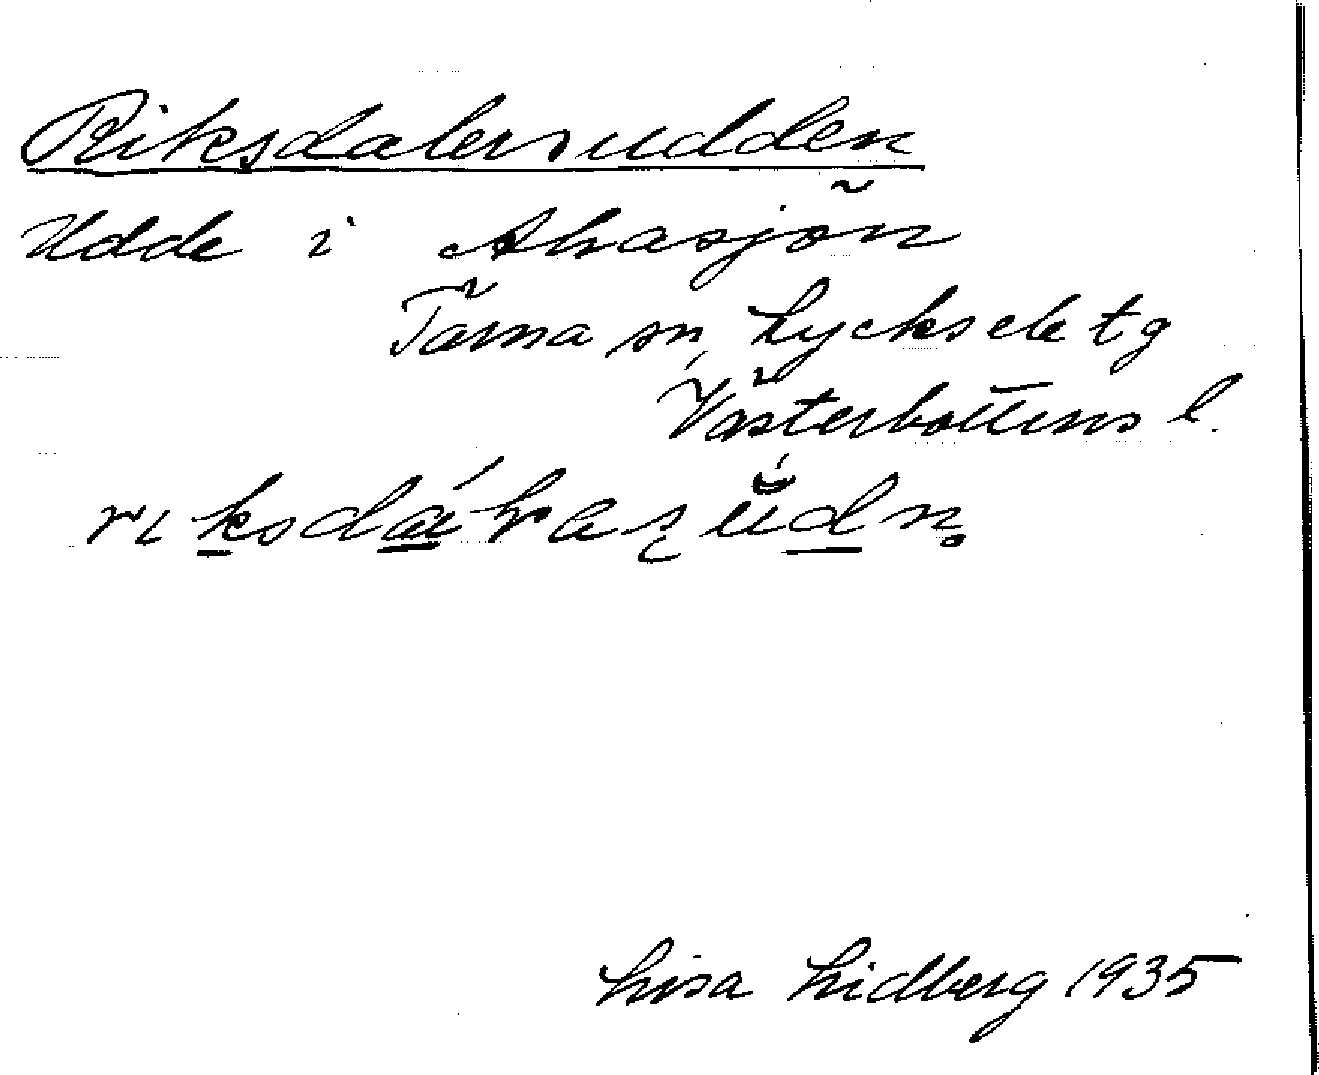 Riksdalersudden
Udde i Ahasjön
Tärna sn, Lycksele tg
Västerbottens l.
Lisa Lidberg 1935